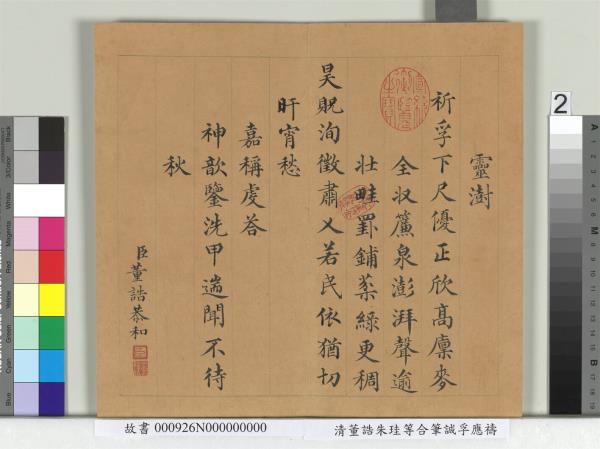 靈澍
祈孚下尺優正欣高廩麥
全収簾泉澎湃聲逾
壯畦罫鋪菜綠更稠
昊貺洵徵肅乂若民依猶切
旰宵愁
嘉稱虔荅
神歆鑒洗甲遄聞不待
秋
臣董誥恭和
宣統御覽之寶
故書 000926N000000000
清董誥朱珪等合筆誠孚應禱
2